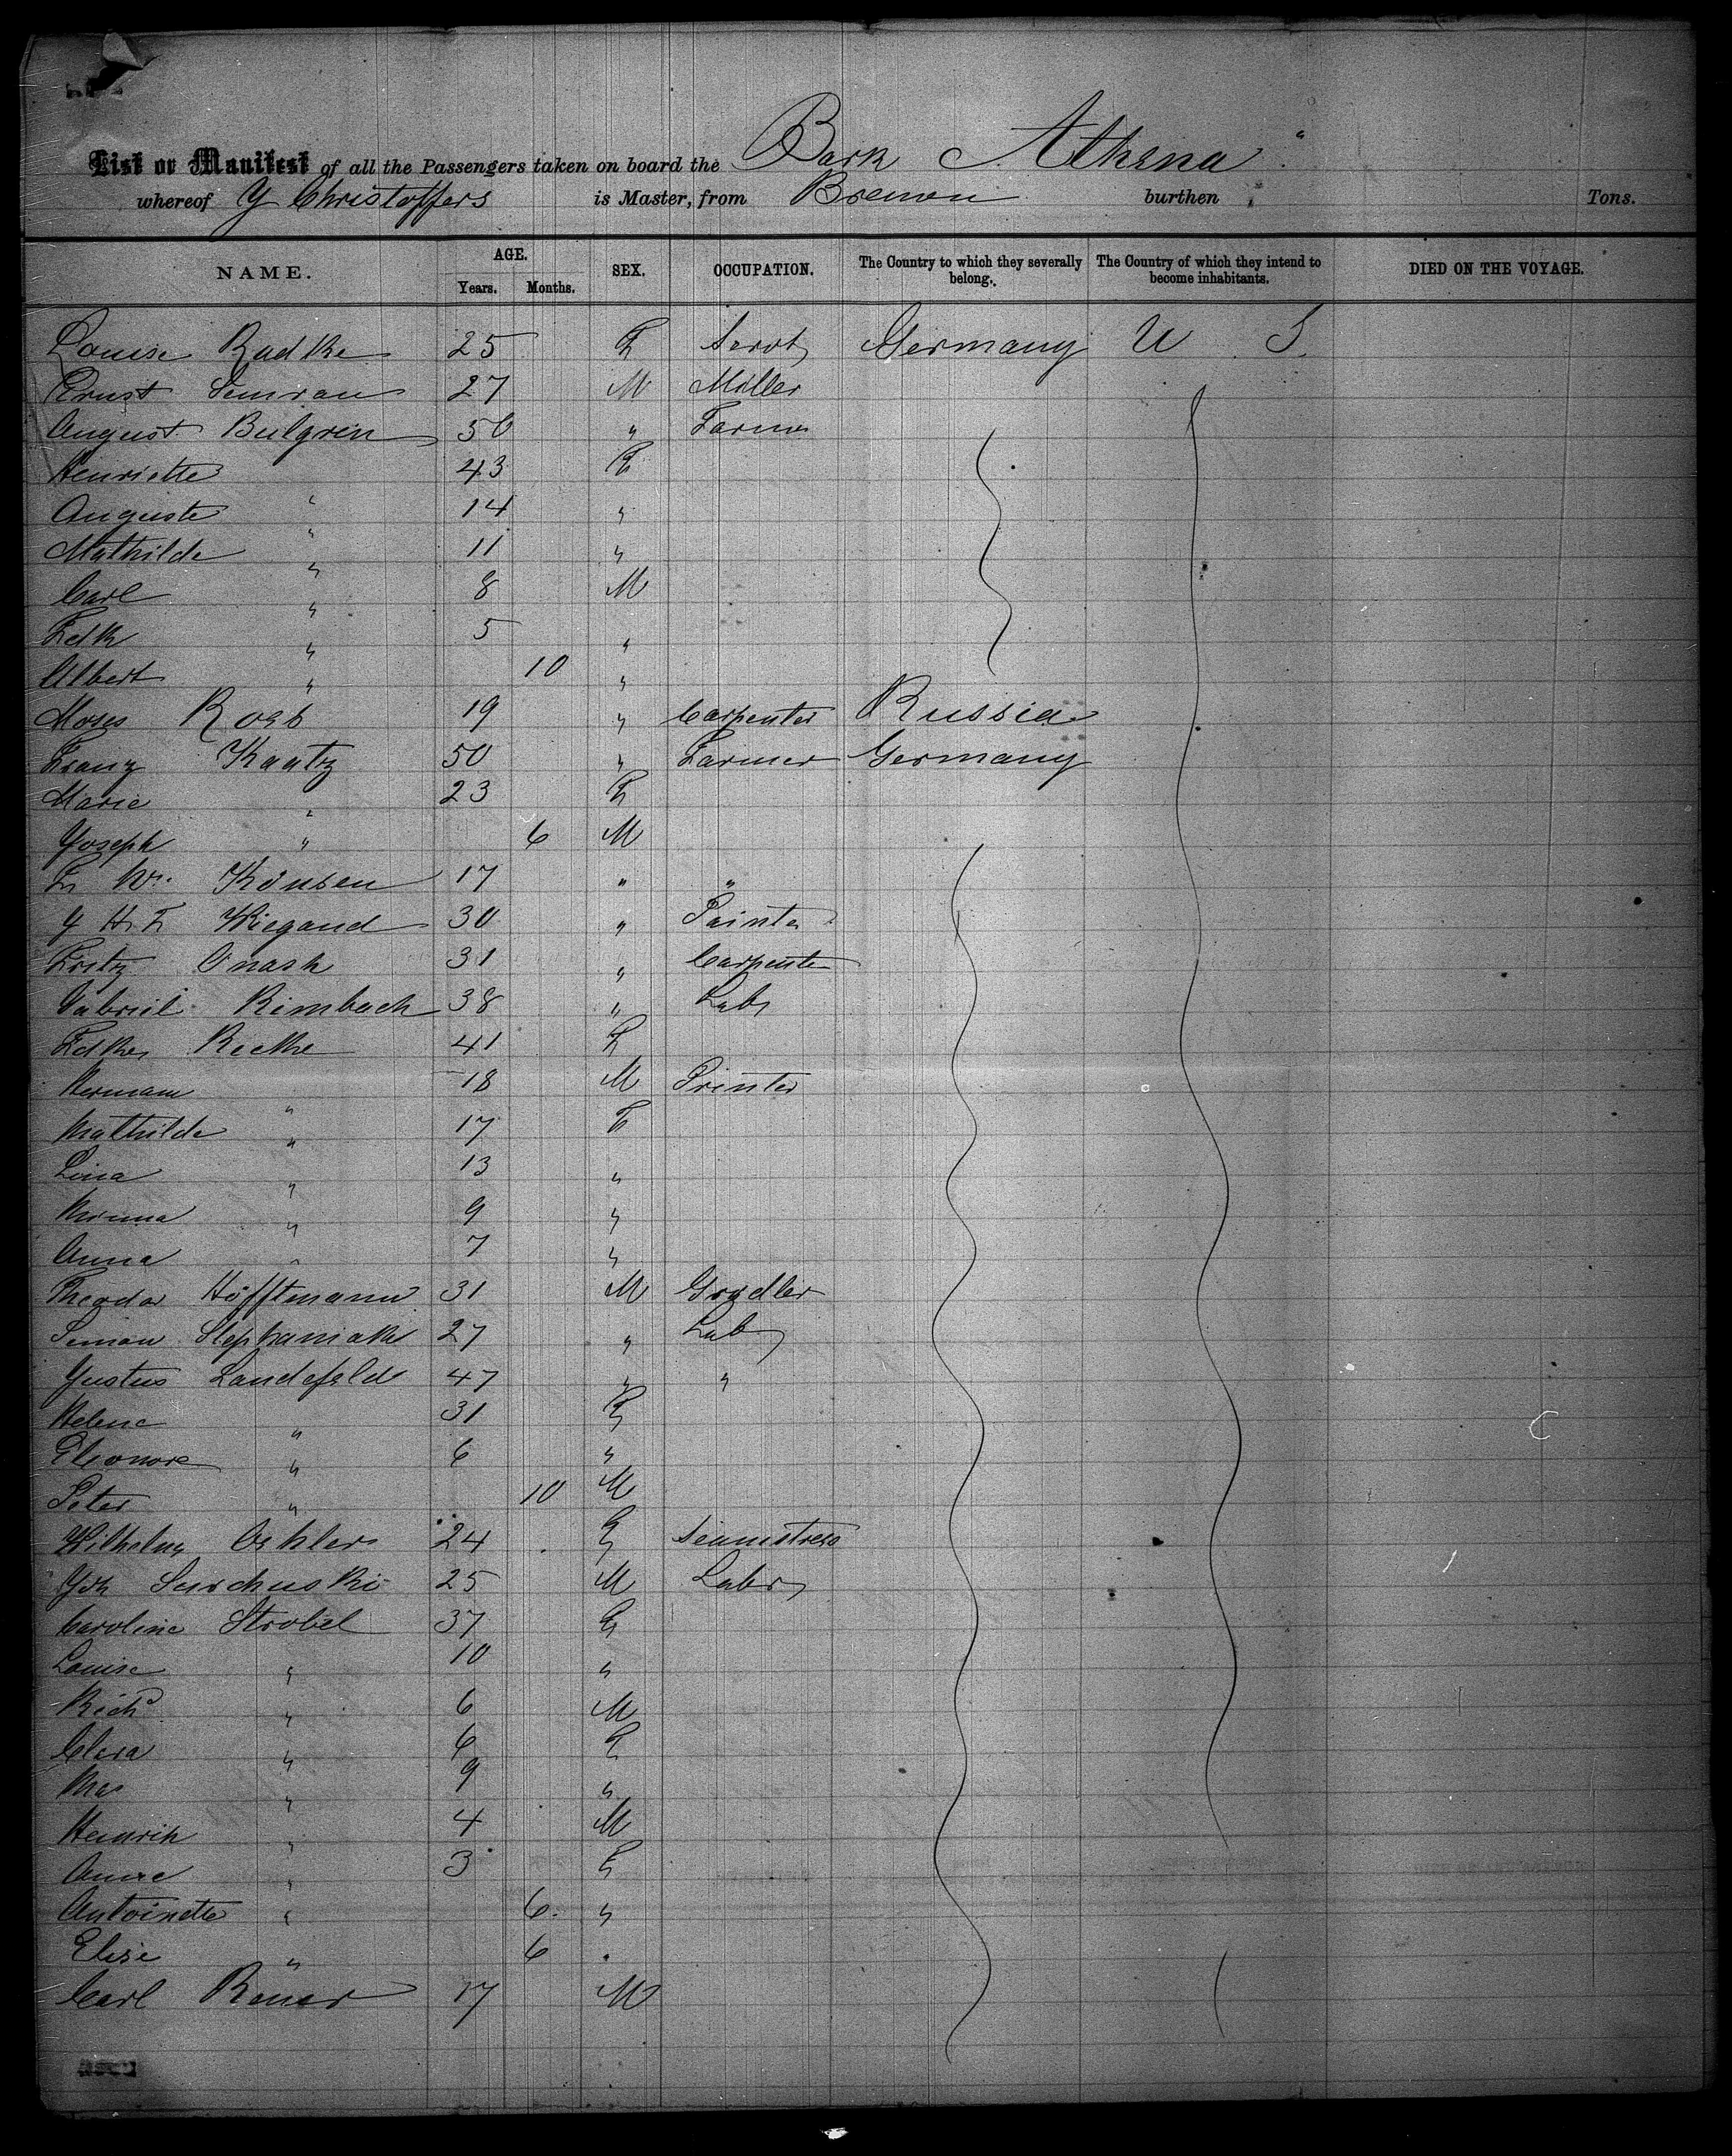 List or Manifest of all the Passengers taken on board the Bark Athena "
whereof J Christoffers is Master, from Bremen burthen Tons.
NAME. AGE. SEX. OCCUPATION. The Country to which they severally belong. The Country of which they intend to become inhabitants. DIED ON THE VOYAGE.
Years. Months.
Louise Radke 25 F Servt Germany U S
Ernst Semrau 27 M Miller
August Bulgrin 50 " Farmer
Henriette 43 F
Auguste " 14 "
Mathilde " 11 "
Carl " 8 M
Fdk " 5 "
Albert " 10 "
Moses Rosb 19 " Carpenter Russia
Franz Kaatz 50 " Farmer Germany
Marie " 23 F
Joseph " 6 M
F Wm Könsen 17 " "
J H F Wiegand 30 " Painter
Fritz Onash 31 " Carpenter
Gabriel Rimbach 38 " Labr
Fdke Reethe 41 F
Hermann " 18 M Printer
Mathilde " 17 F
Lina " 13 "
Minna " 9 "
Anna " 7 "
Theodor Höfftmann 31 M Gradler
Simon Stephaniak 27 " Labr
Justus Landefeld 47 " "
Helene " 31 F
Eleonore " 6 "
Peter " 10 M
Wilhelmy Oehlers 24 F Seamstress
Joh Surchuski 25 M Labr
Caroline Strobel 37 F
Louise " 10 "
Richd " 6 M
Clara " 6 F
" 9 "
Heinrih " 4 M
Anna " 3 F
Antoinette " 6 "
Elise " 6 "
Carl Rener 17 M